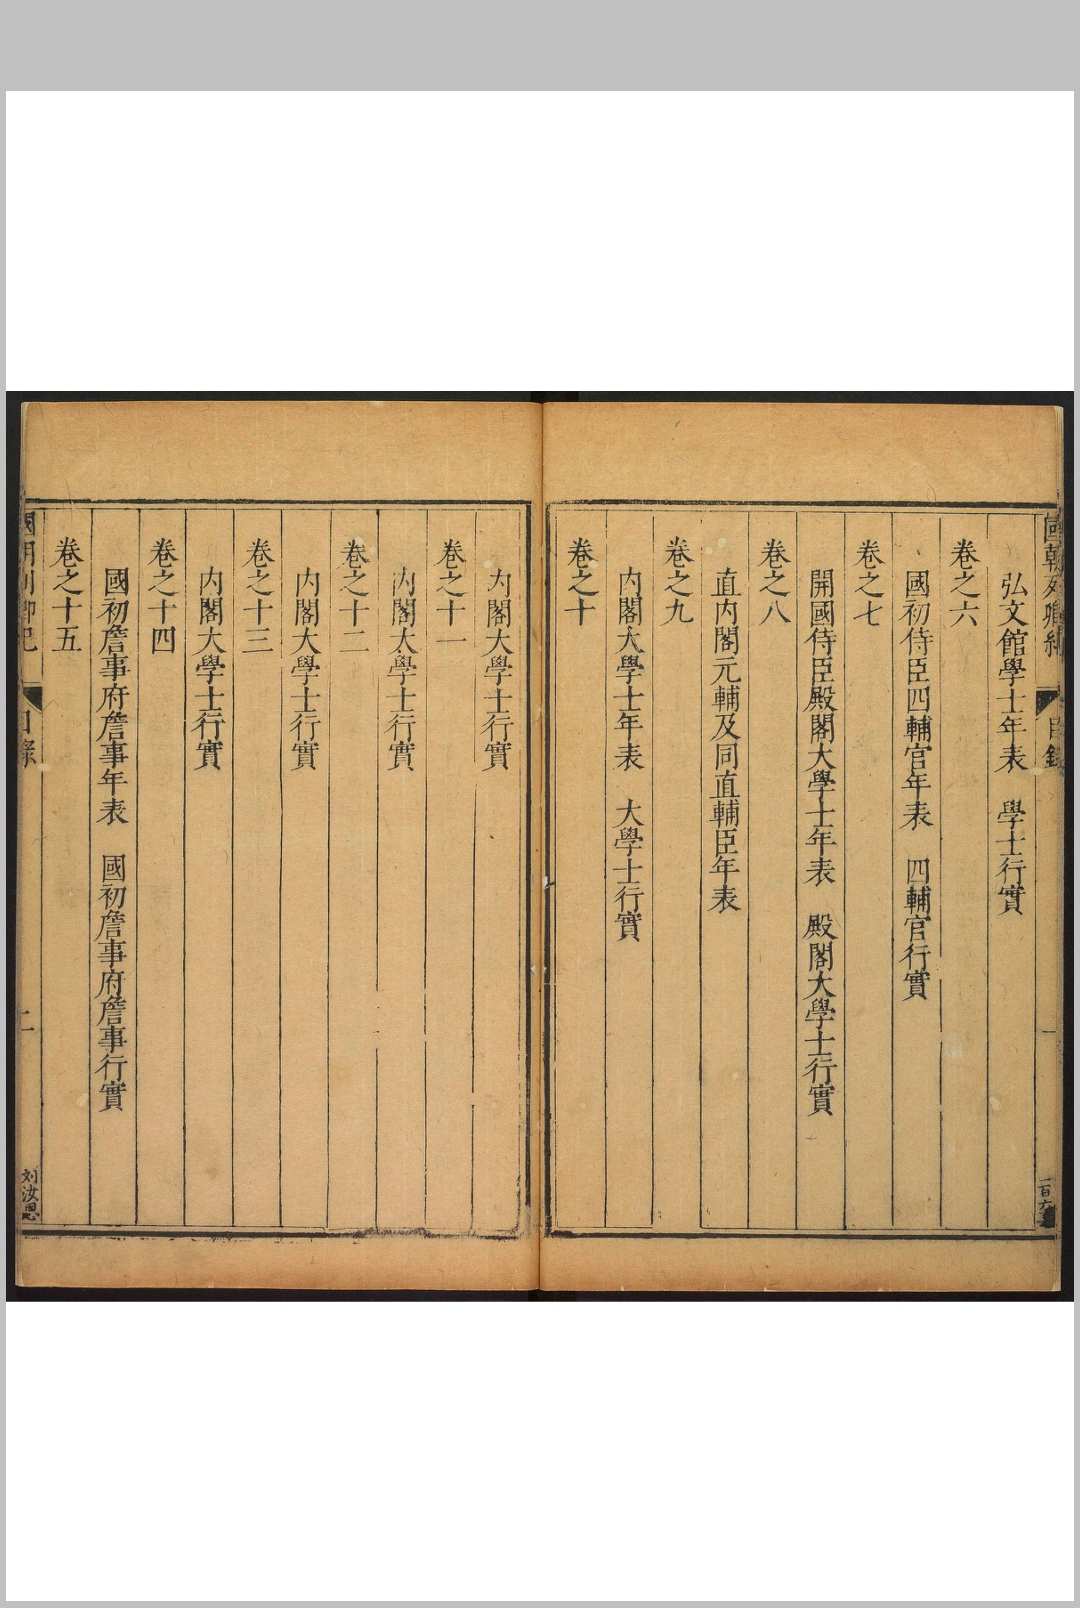 國朝列卿紀
目錄
弘文館學士年表　學士行實
卷之六
國初侍臣四輔官年表　四輔官行實
卷之七
開國侍臣殿閣大學士年表　殿閣大學士行實
卷之八
直內閣元輔及同直輔臣年表
卷之九
内閣大學士年表　大學士行實
卷之十
内閣大學士行實
卷之十一
内閣大學士行實
卷之十二
内閣大學士行實
卷之十三
内閣大學士行實
卷之十四
國初詹事府詹事年表　國初詹事府詹事行實
卷之十五
國朝列卿紀
目錄
二
刘汝恩